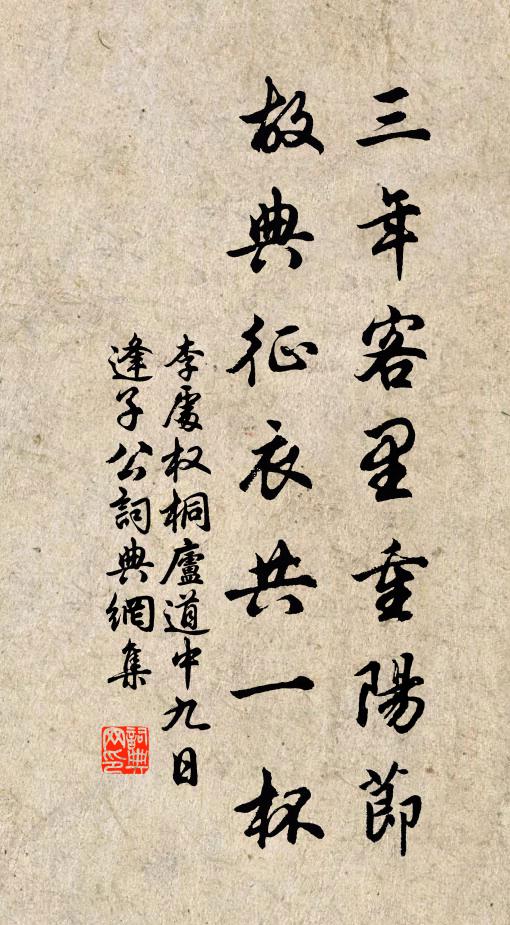 三年客里重陽節
故典征衣共一杯
李處权桐廬道中九日
逢子公詞典網集
詞典网印